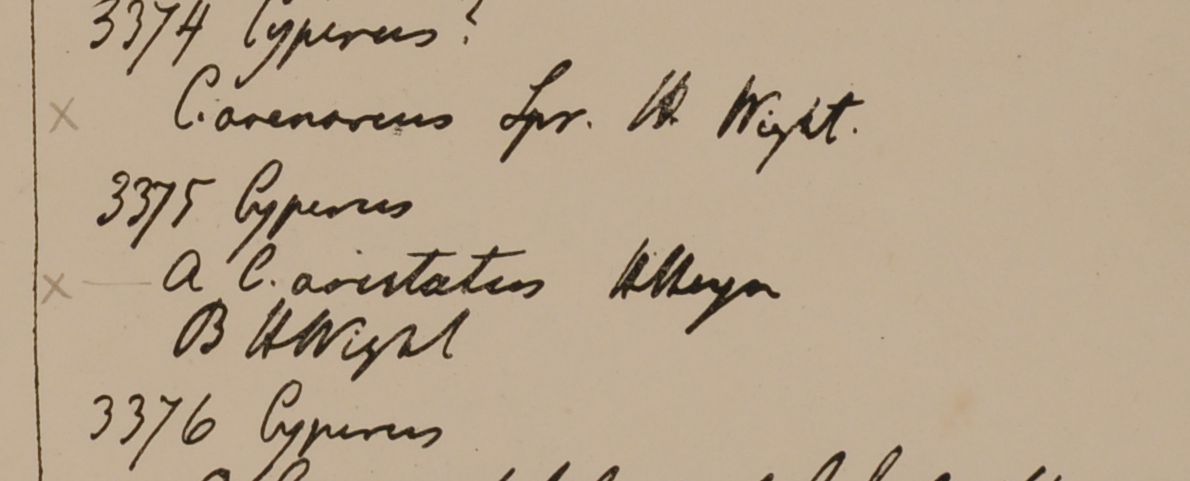 3374 Cyperus?
X C. arenarius Spr. H Wight.
3375 Cyperus
X — A C. aristatus H Heyn
B H Wight
3376 Cyperus